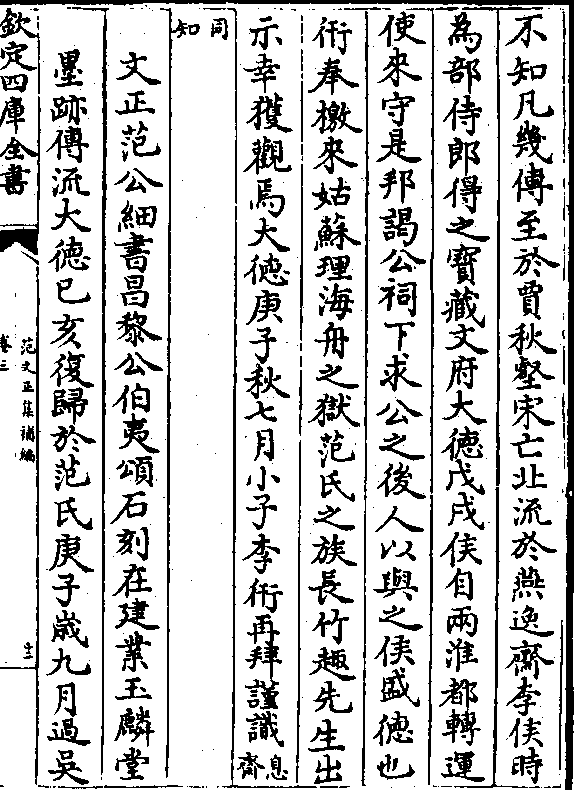 不知凡幾傳至於賈秋壑宋亡北流於燕逸齋李侯時
為部侍郎得之寳藏文府大徳戊戌侯自兩淮都轉運
使來守是邦謁公祠下求公之後人以與之侯盛徳也
衎奉檄來姑蘇理海舟之獄范氏之族長竹趣先生出
示幸獲觀焉大徳庚子秋七月小子李衎再拜謹識息齋
同知
文正范公細書昌黎公伯夷頌石刻在建業玉麟堂
墨跡傳流大徳已亥復歸於范氏庚子歲九月過吳
欽定四庫全書
范文正集補編
卷三